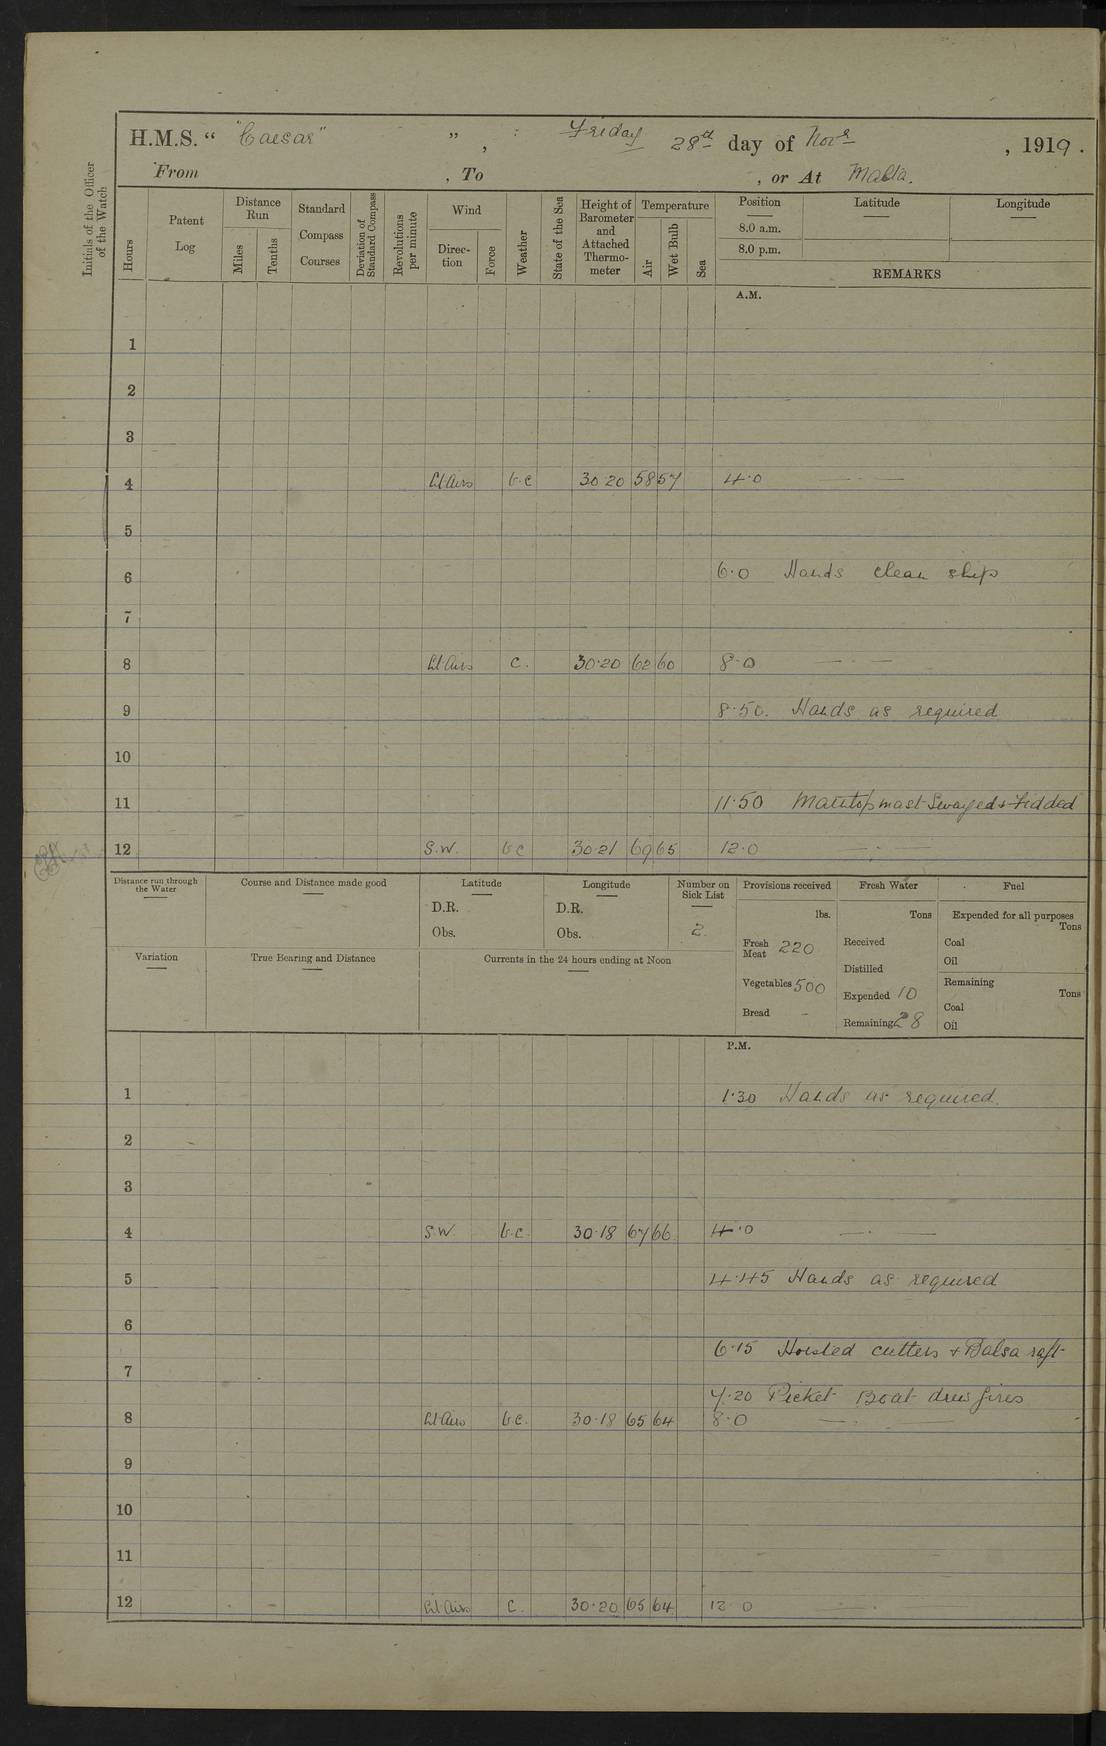 H.M.S. " "Caesar" " , Friday 28th day of Novr , 1919.
From , To , or At Malta.
Initials of the Officer of the Watch
Hours
Patent Log
Distance Run
Miles
Tenths
Standard Compass Courses
Deviation of Standard Compass
Revolutions per minute
Wind
Direc-tion
Force
Weather
State of the Sea
Height of Barometer and Attached Thermo-meter
Temperature
Air
Wet Bulb
Sea
Position Latitude Longitude
8.0 a.m.
8.0 p.m.
REMARKS
A.M.
1
2
3
4 Lt Airs b.c 30.20 58 57 4.0 — · —
5
6 6.0 Hands clean ship
7
8 Lt Airs c. 30.20 62 60 8.0 — · —
9 8.50. Hands as required
10
11 11.50 Maintopmast Swayed & Fidded
12 S.W. bc 30.21 69 65 12.0 — · —
Distance run through the Water
Course and Distance made good
Latitude
D.R.
Obs.
Longitude
D.R.
Obs.
Number on Sick List
2
Provisions received
lbs.
Fresh Meat 220
Vegetables 500
Bread -
Fresh Water
Tons
Received
Distilled
Expended 10
Remaining 28
Fuel
Expended for all purposes
Tons
Coal
Oil
Remaining
Tons
Coal
Oil
Variation
True Bearing and Distance
Currents in the 24 hours ending at Noon
P.M.
1 1.30 Hands as required.
2
3
4 S.W. b.c. 30.18 67 66 4.0 — · —
5 4.45 Hands as required
6
6.15 Hoisted cutters & Balsa raft
7
7.20 Picket Boat drew fires
8 Lt Airs b.c. 30.18 65 64 8.0 — ·
9
10
11
12 Lt Airs c. 30.20 65 64 12 0 — · —